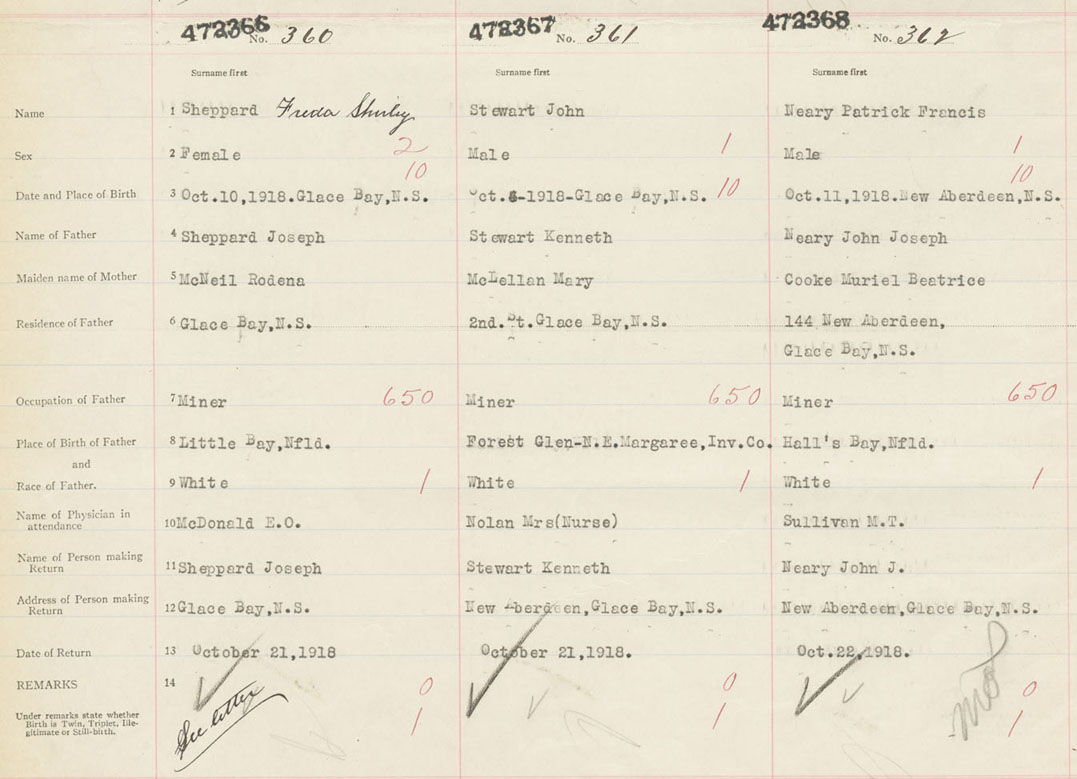 472366 No. 360 472367 No. 361 472368 No. 362
Surname first Surname first Surname first
Name 1 Sheppard Freda Shirley Stewart John Neary Patrick Francis
Sex 2 Female 2 Male 1 Male 1
10 10
Date and Place of Birth 3 Oct.10,1918.Glace Bay,N.S. Oct. -1918-Glace Bay,N.S. 10 Oct.11,1918.New Aberdeen,N.S.
Name of Father 4 Sheppard Joseph Stewart Kenneth Neary John Joseph
Maiden name of Mother 5 McNeil Rodena McLellan Mary Cooke Muriel Beatrice
Residence of Father 6 Glace Bay,N.S. 2nd.Pt.Glace Bay,N.S. 144 New Aberdeen,
Glace Bay,N.S.
Occupation of Father 7 Miner 650 Miner 650 Miner 650
Place of Birth of Father 8 Little Bay,Nfld. Forest Glen-N.E.Margaree,Inv.Co. Hall's Bay,Nfld.
and
Race of Father. 9 White 1 White 1 White 1
Name of Physician in
attendance 10 McDonald E.O. Nolan Mrs(Nurse) Sullivan M.T.
Name of Person making
Return 11 Sheppard Joseph Stewart Kenneth Neary John J.
Address of Person making
Return 12 Glace Bay,N.S. New Aberdeen,Glace Bay,N.S. New Aberdeen,Glace Bay,N.S.
Date of Return 13 October 21,1918 October 21,1918. Oct.22,1918.
REMARKS 14 0 0 0
Under remarks state whether
Birth is Twin, Triplet, Ille-
gitimate or Still-birth. See letter 1 1 1